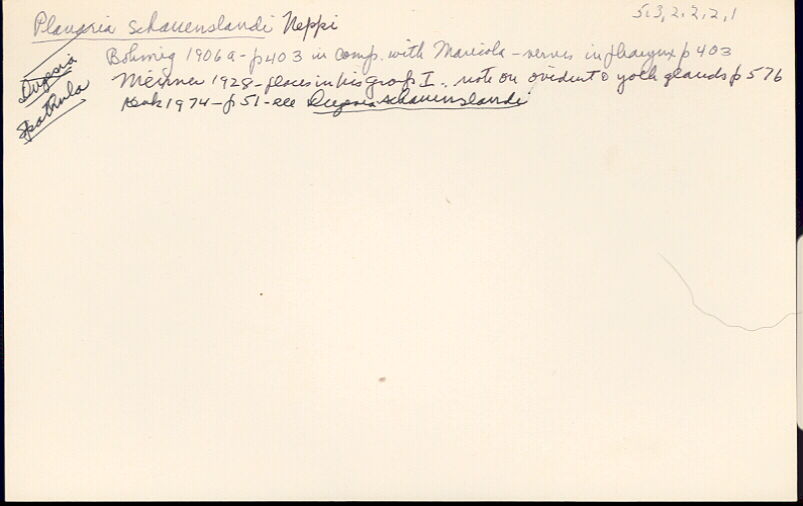 Planaria schauenslandi Neppi
5.3, 2, 2, 2, 1
Böhmig 1906a - p403 in comp. with Maricola - nerves in pharynx p 403
Meixner 1928 - places in his group I. note on oviduct & yolk glands p 576
Kenk 1974 - p 51 - see Dugesia schauenslandi
Dugesia
Spathula